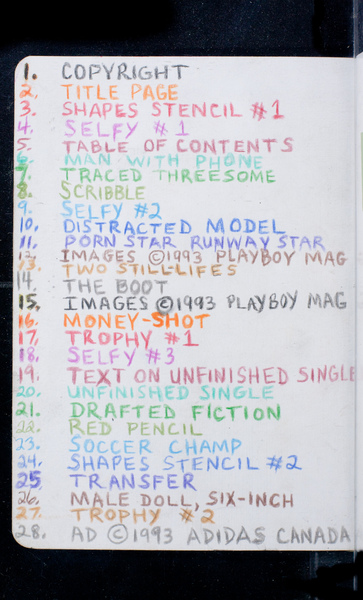 1. COPYRIGHT
2. TITLE PAGE
3. SHAPES STENCIL #1
4. SELFY #1
5. TABLE OF CONTENTS
6. MAN WITH PHONE
7. TRACED THREESOME
8. SCRIBBLE
9. SELFY #2
10. DISTRACTED MODEL
11. PORN STAR RUNWAY STAR
12. IMAGES ©1993 PLAYBOY MAG
13. TWO STILL-LIFES
14. THE BOOT
15. IMAGES ©1993 PLAYBOY MAG
16. MONEY-SHOT
17. TROPHY #1
18. SELFY #3
19. TEXT ON UNFINISHED SINGLE
20. UNFINISHED SINGLE
21. DRAFTED FICTION
22. RED PENCIL
23. SOCCER CHAMP
24. SHAPES STENCIL #2
25. TRANSFER
26. MALE DOLL, SIX-INCH
27. TROPHY #2
28. AD ©1993 ADIDAS CANADA